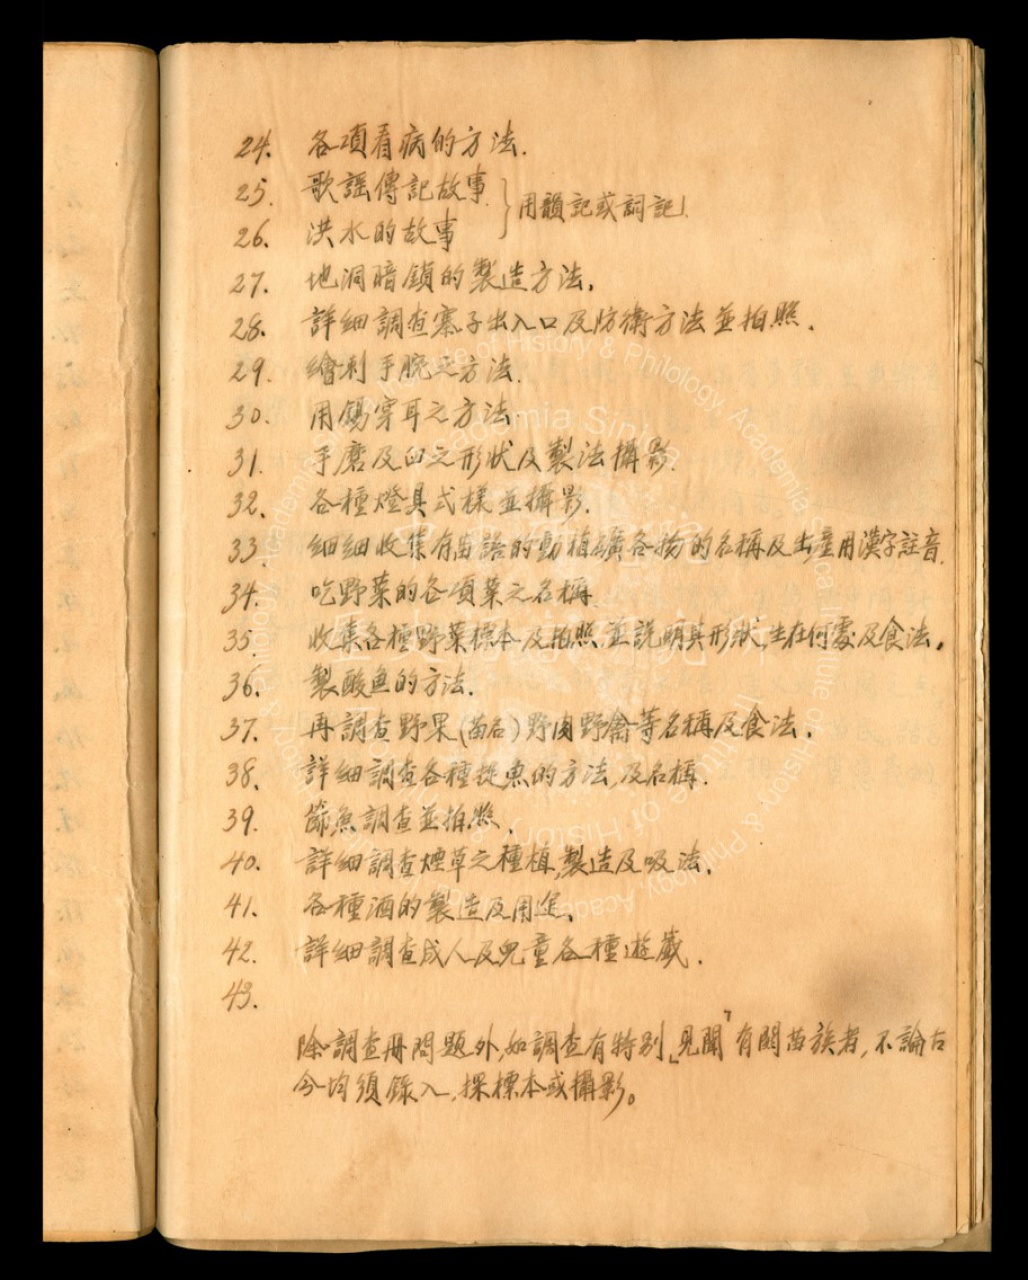 24. 各項看病的方法.
25. 歌謡傳記故事.
用韻記或詞記」
26. 洪水的故事
27. 地洞暗鎖的製造方法.
28. 詳細調查寨子出入口及防衛方法並拍照.
29. 繪刺手腕之方法.
30. 用錫穿耳之方法.
31. 手磨及臼之形狀及製法攝影.
32. 各種燈具式樣並攝影.
33. 細細收集有苗語的動植礦各物的名稱及出產用漢字註音.
34. 吃野菜的各項菜之名稱
35. 收集各種野菜標本及拍照並説明其形狀,生在何處及食法.
36. 製酸魚的方法.
37. 再調查野果(苗名)野肉野禽等名稱及食法.
38. 詳細調查各種捉魚的方法,及名稱.
39. 節魚調查並拍照.
40. 詳細調查煙草之種植,製造及吸法.
41. 各種酒的製造及用途.
42. 詳細調查成人及兒童各種遊戲.
43.
除調查冊問題外,如調查有特別「見聞」有關苗族者,不論古
今均須錄入,採標本或攝影。
Institute of History & Philology, Academia Sinica